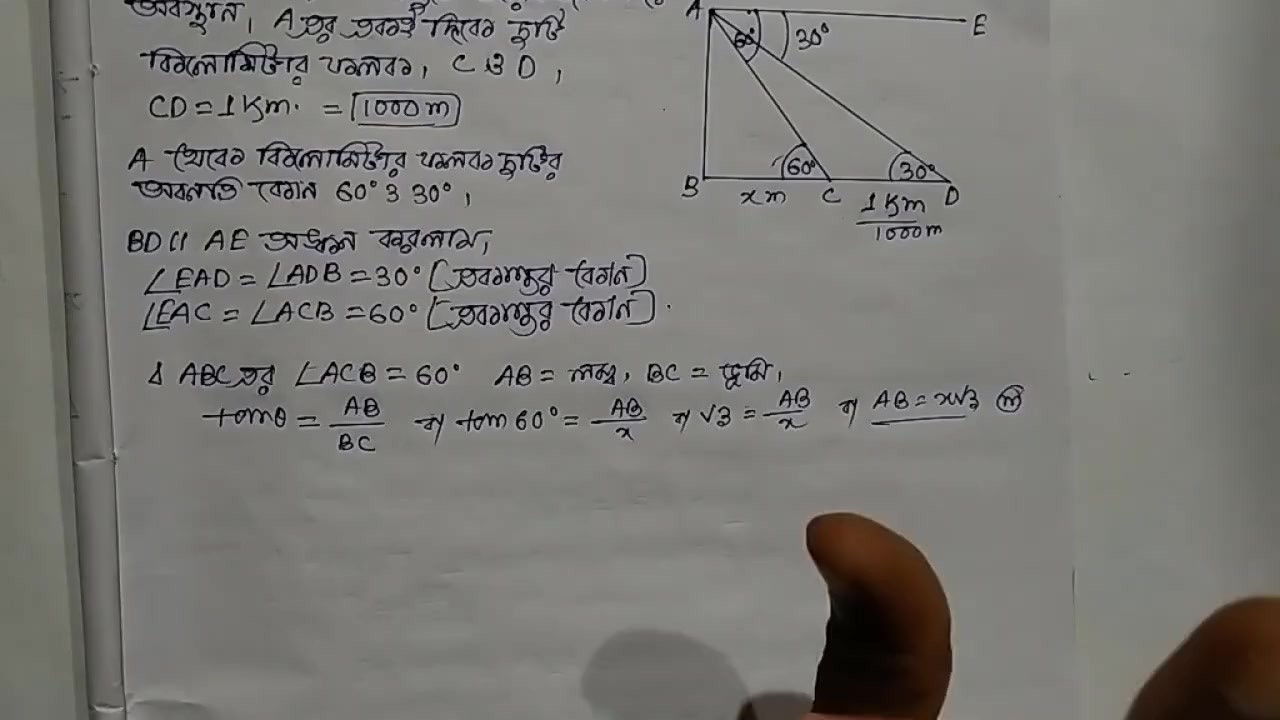 অবস্থান, A এর একই দিকের দুটি
কিলোমিটার ফলক, C ও D,
CD = 1 Km. = 1000 m
A থেকে কিলোমিটার ফলক দুটির
অবনতি কোণ 60° ও 30°,
BD || AE অঙ্কন করলাম,
∠EAD = ∠ADB = 30° [একান্তর কোণ]
∠EAC = ∠ACB = 60° [একান্তর কোণ].
Δ ABC এর ∠ACB = 60° AB = লম্ব, BC = ভূমি,
tanθ = AB/BC বা tan 60° = AB/x বা √3 = AB/x বা AB = x√3 m
A
E
60°
30°
60°
30°
B
x m
C
1 Km
D
1000 m